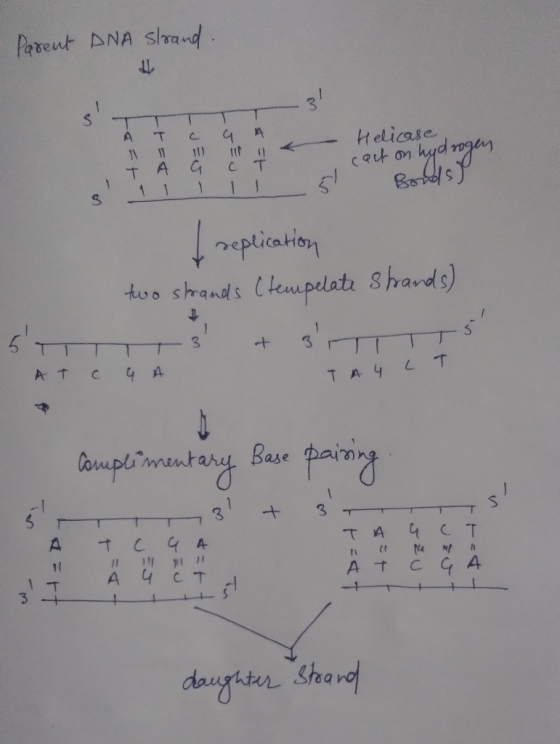 Parent DNA strand.
5' 3'
A T C G A
T A G C T
3' 5'
Helicase
(act on hydrogen
Bonds)
replication
two strands (tempelate Strands)
5' 3' + 3' 5'
A T C G A T A G C T
Complimentary Base pairing.
5' 3' + 3' 5'
A T C G A T A G C T
T A G C T A T C G A
3' 5'
daughter Strand